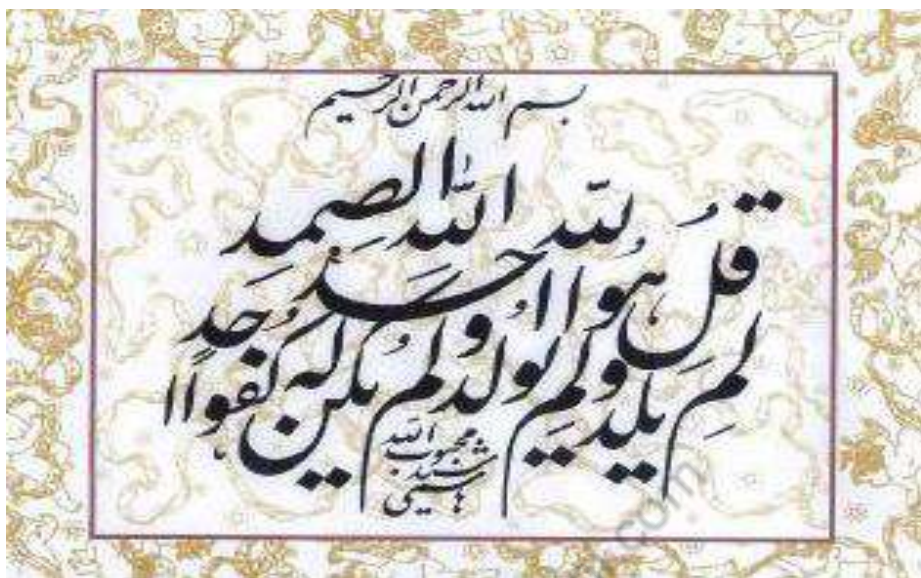 بسم الله الرحمن الرحيم
قل هو الله احد الله الصمد
لم يلد ولم يولد ولم يكن له كفوا احد
محبوب الله
هاشمی
com